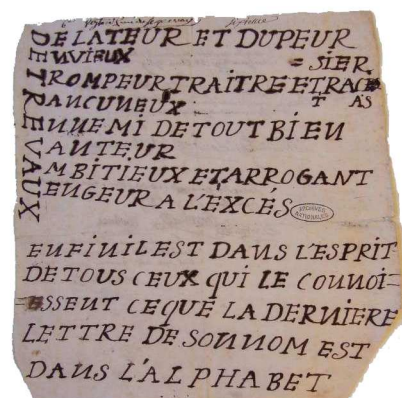 DELATEUR ET DUPEUR
ENVIEUX = SIER
TROMPEUR TRAITRE ET RACAS
RANCUNEUX
ENNEMI DE TOUT BIEN
VANTEUR
AMBITIEUX ET ARROGANT
UENGEUR A L'EXCÉS
X
ARCHIVES NATIONALES
ENFIN IL EST DANS L'ESPRIT
DE TOUS CEUX QUI LE CONNOI=
=ESSENT CE QUE LA DERNIERE
LETTRE DE SON NOM EST
DANS L'ALPHABET